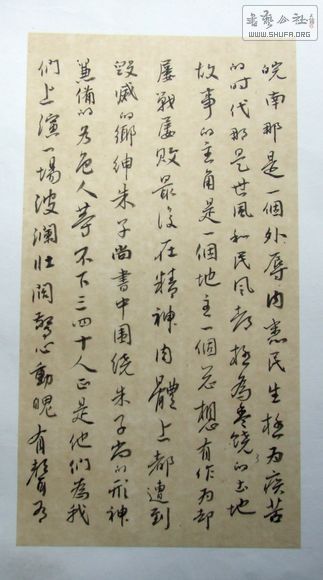 皖南那是一個外辱内患民生極为疾苦
的时代那是世風和民风都極為參饶的土地
故事的主角是一個地主一個总想有作为却
屡戰屡败最後在精神肉體上都遭到
毁滅的鄉绅朱子尚書中围绕朱子尚的形神
兼備的角色人等不下三四十人正是他們為我
們上演一場波瀾壯阔驚心動魄有聲有
書藝公社
WWW.SHUFA.ORG